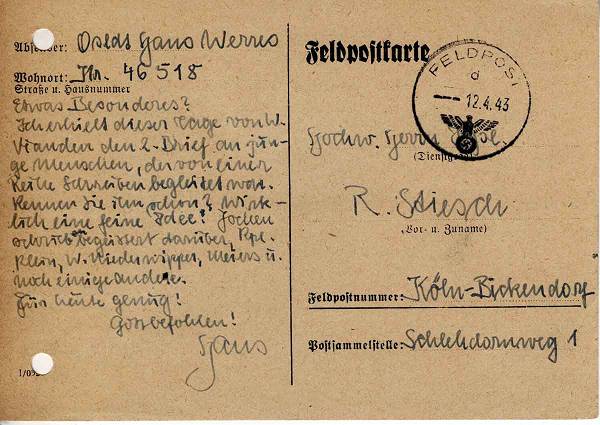 Absender: Opeds Hans Werres
Wohnort: Nr. 46518
Straße u. Hausnummer
Etwas Besonderes?
Ich erhielt dieser Tage von W.
Vianden den 2. Brief an jun-
ge Menschen, der von einer
Reihe Schreiben begleitet war.
Kennen Sie ihn schon? Wirk-
lich eine feine Idee! Jochen
schrieb begeistert darüber,
Klein, W. Niederwipper, Meiers u.
noch einige andere.
Für heute genug!
Gottbefohlen!
Hans
Feldpostkarte
FELDPOST
d
--- 12.4.43
Hochw. Herrn
(Dienstgrad)
R. Stiesch
(Vor- u. Zuname)
Feldpostnummer: Köln-Bickendorf
Postsammelstelle: Schlehdornweg 1